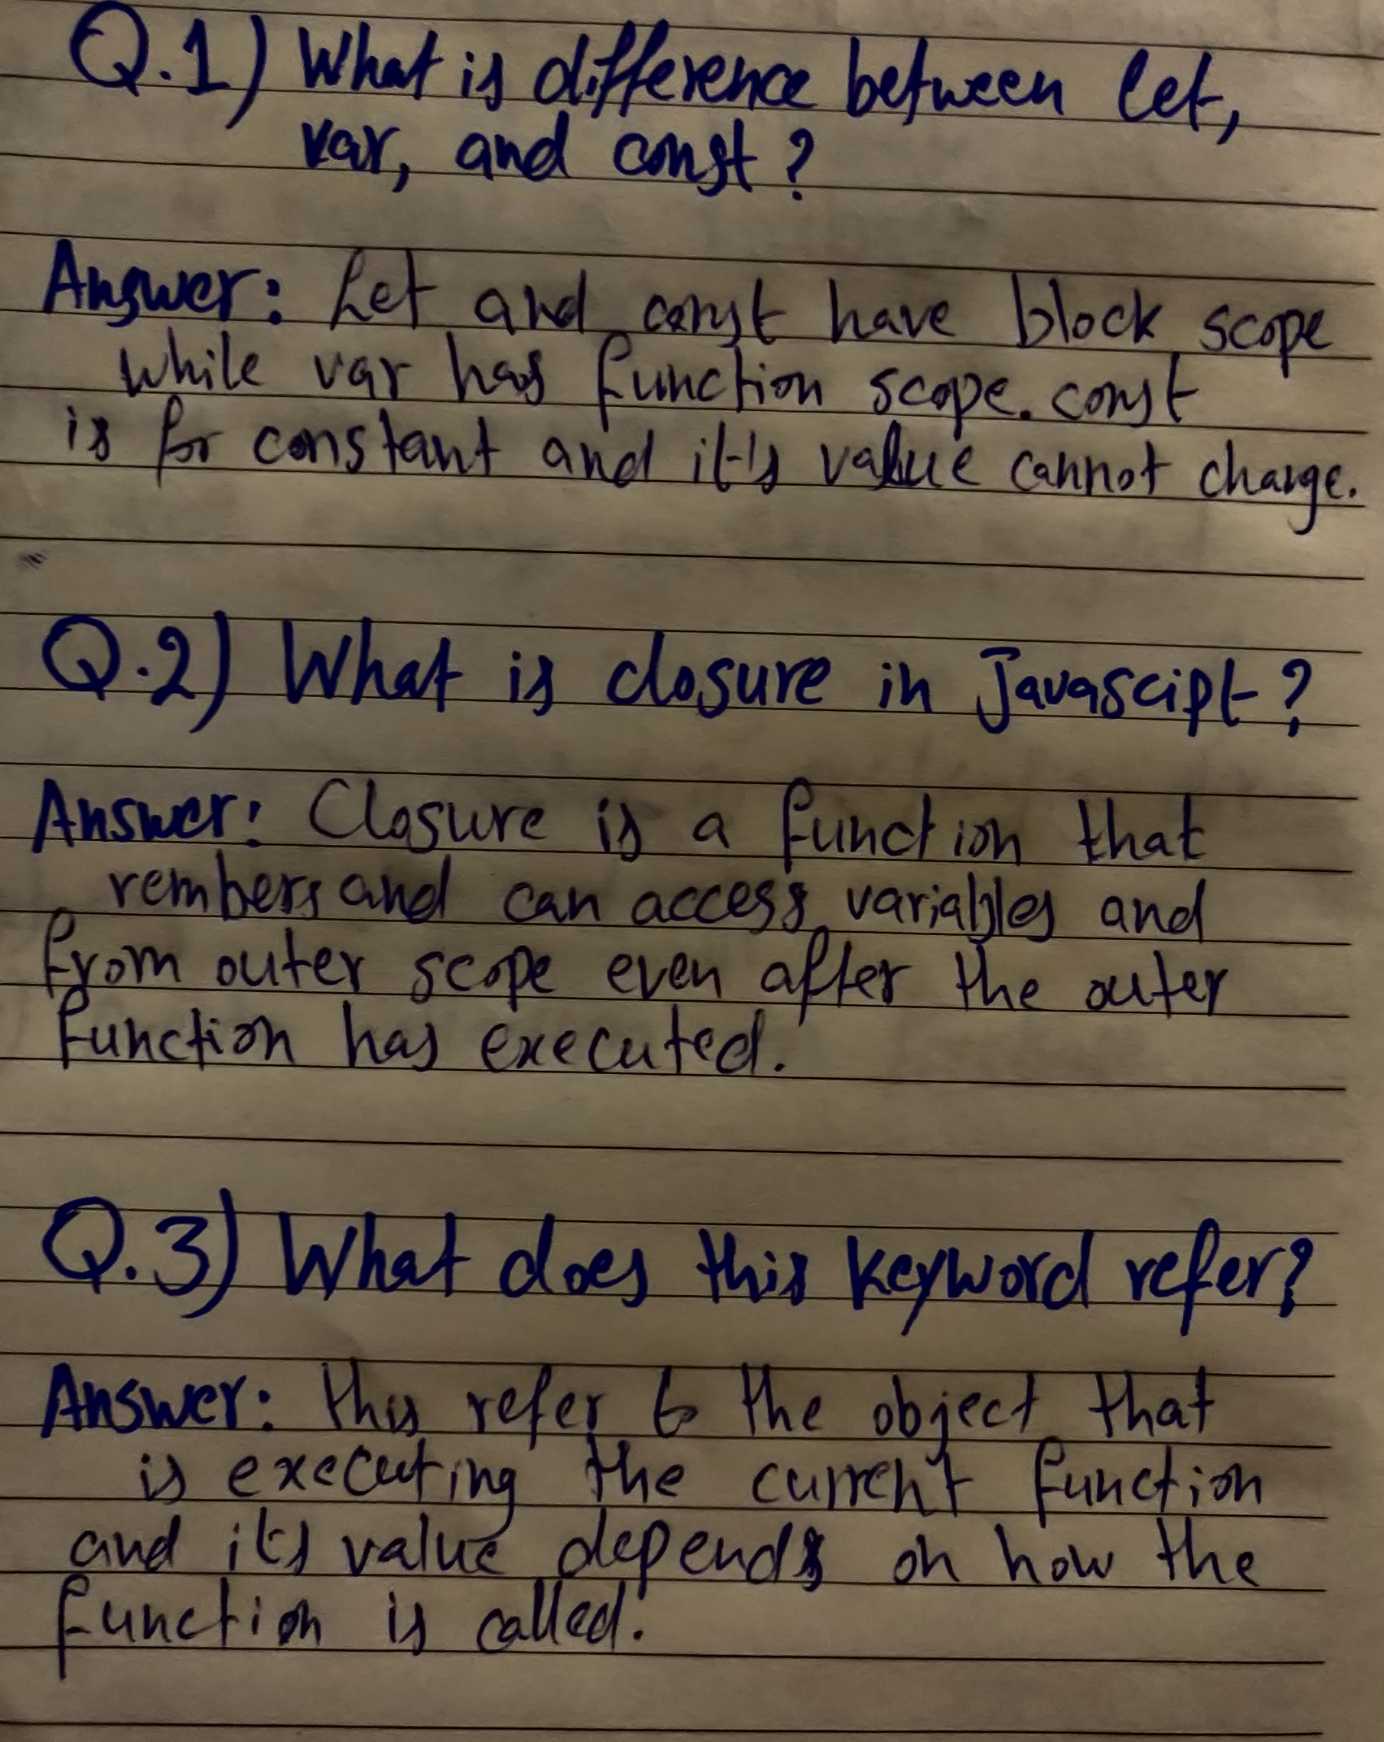 Q.1) What is difference between let,
var, and const?
Answer: Let and const have block scope
while var has function scope. const
is for constant and it's value cannot change.
Q.2) What is closure in Javascipt?
Answer: Closure is a function that
rembers and can access variables and
from outer scope even after the outer
function has executed.
Q.3) What does this keyword refer?
Answer: this refer to the object that
is executing the current function
and its value depends on how the
function is called.